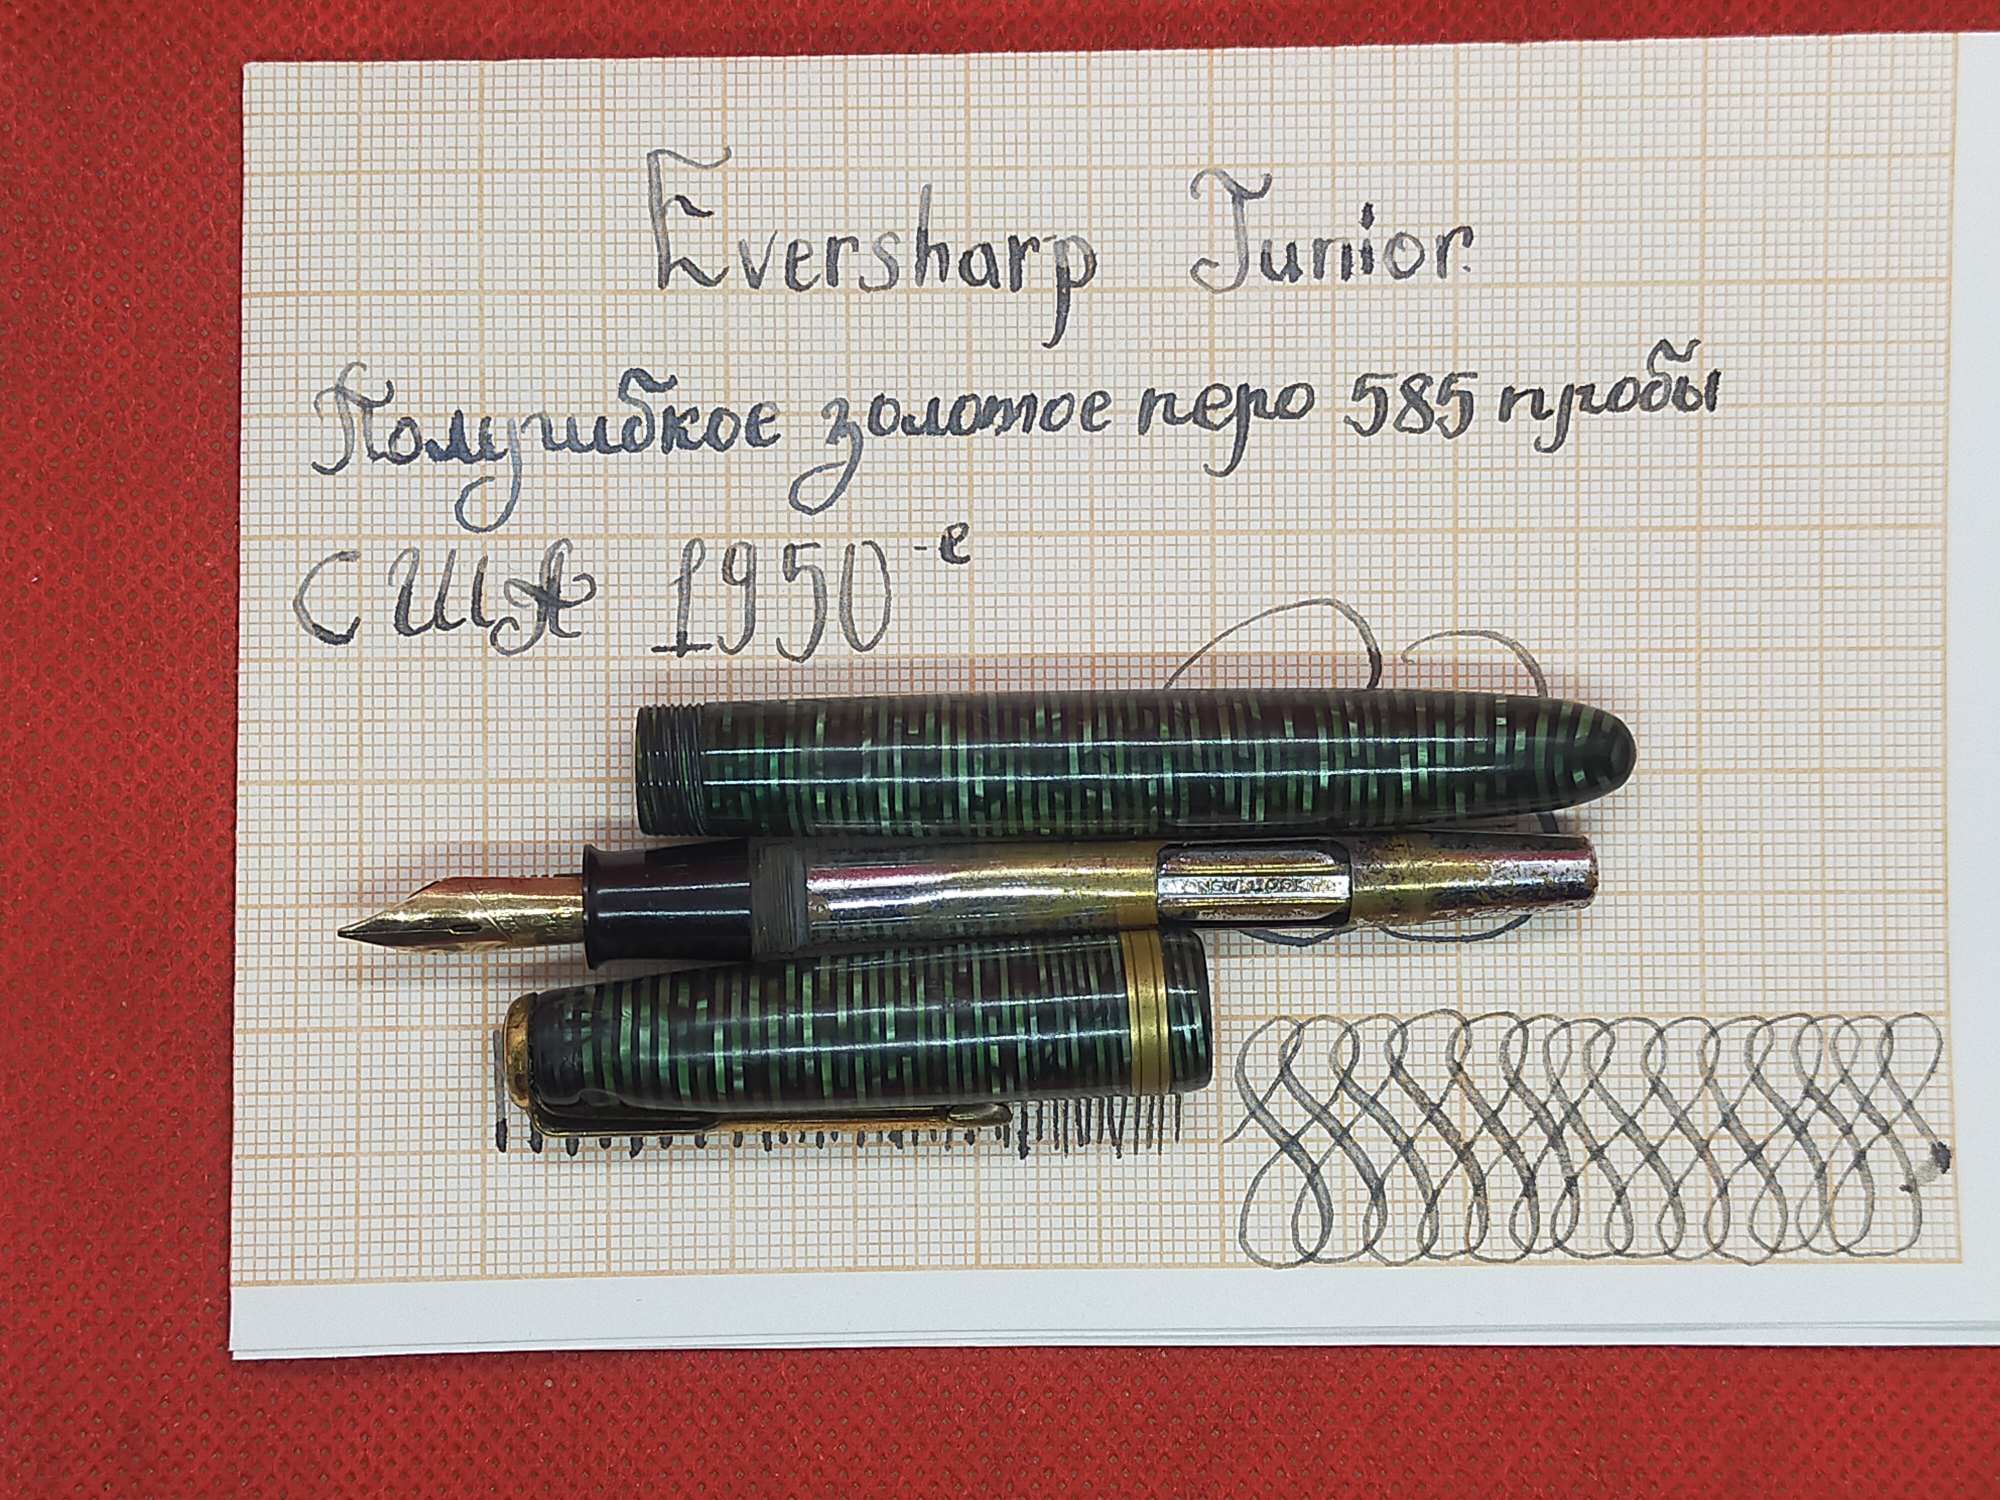 Eversharp Junior
Полугибкое золотое перо 585 пробы
США 1950-е